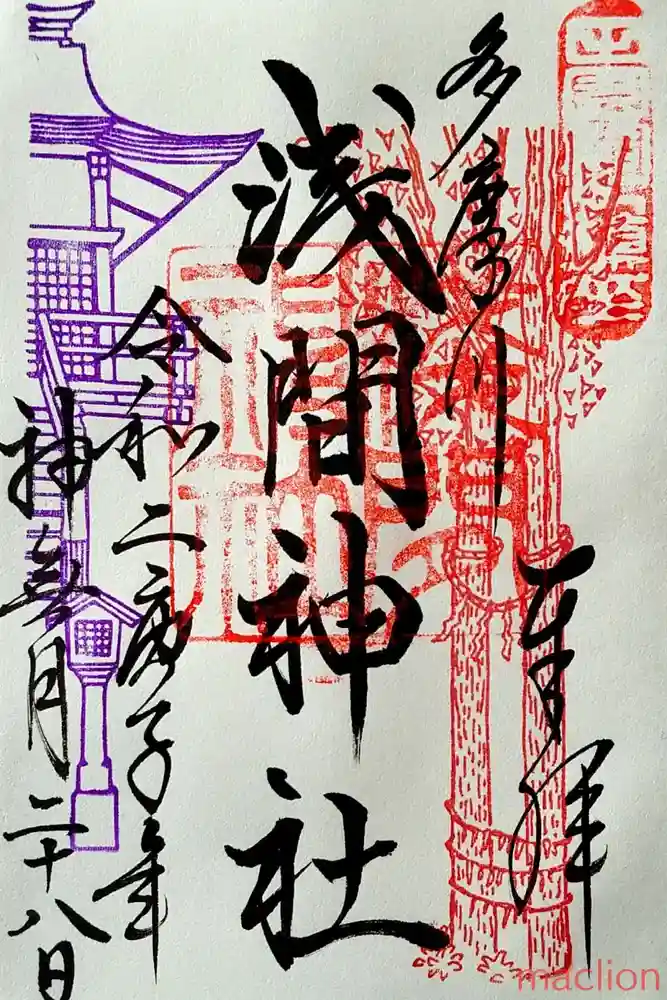 多摩川
奉拝
浅間神社
令和二庚子年
神無月二十八日
maclion